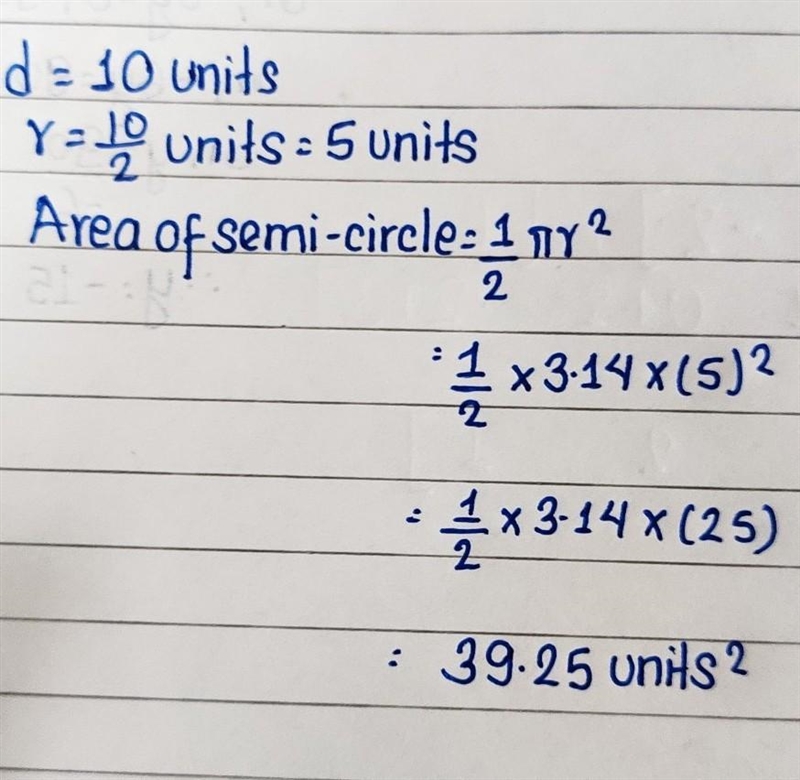 d = 10 units
r = 10/2 units = 5 units
Area of semi-circle = 1/2 πr²
= 1/2 × 3.14 × (5)²
= 1/2 × 3.14 × (25)
= 39.25 units²